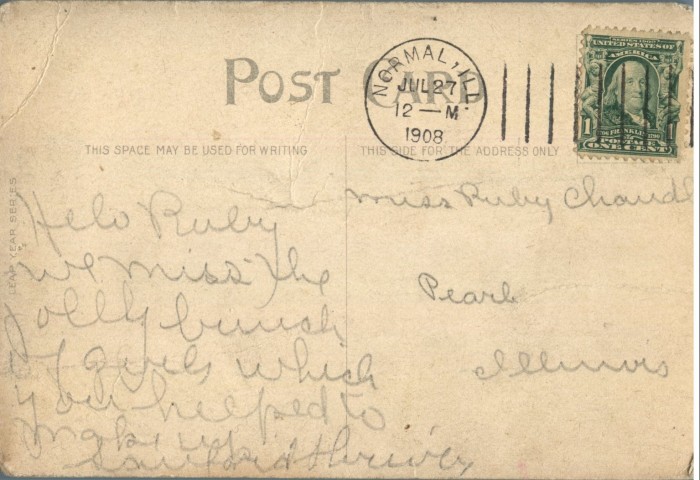 POST CARD
NORMAL, ILL.
JUL 27
12 — M
1908
SERIES 1902
UNITED STATES OF
AMERICA
1 FRANKLIN 1
POSTAGE
ONE CENT
THIS SPACE MAY BE USED FOR WRITING
THIS SIDE FOR THE ADDRESS ONLY
LEAP YEAR SERIES
Helo Ruby
we miss the
jolly bunch
of girls which
you helped to
make up
Miss Ruby Chandl
Pearl
Illinois